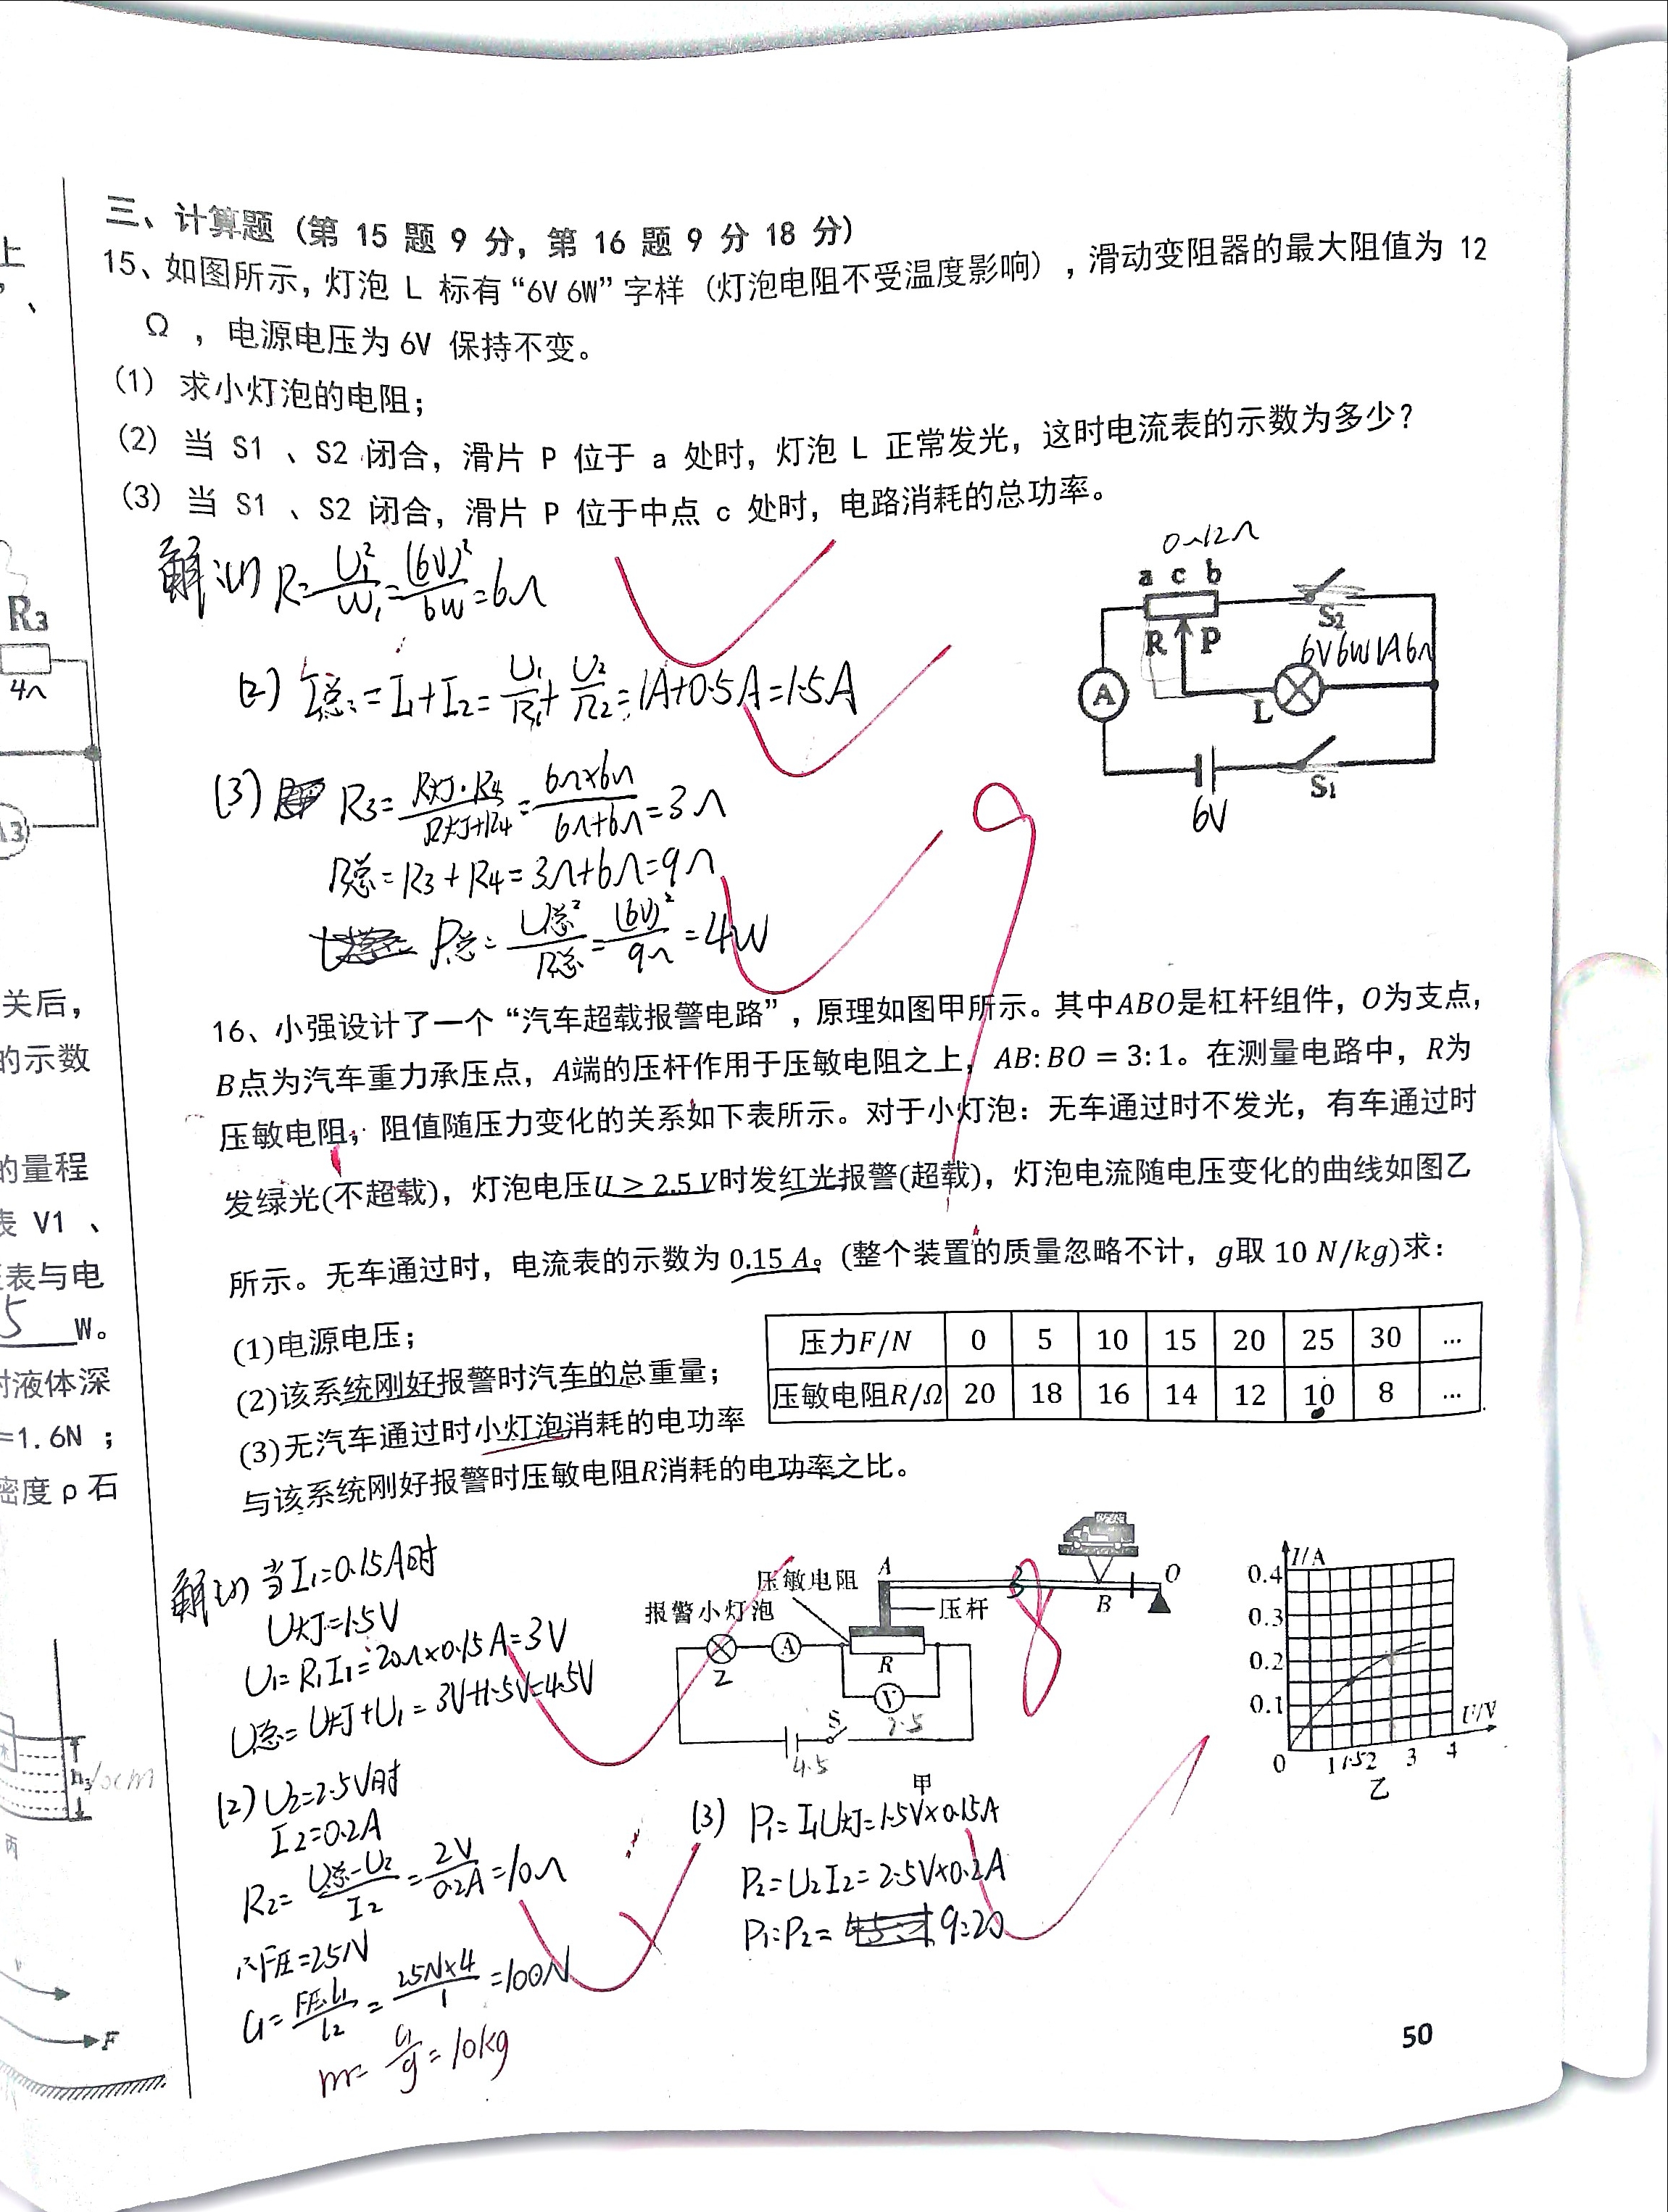 上
、
R3
4Ω
关后，
的示数
的量程
表 V1 、
表与电
5 W。
时液体深
=1.6N ；
密度 ρ 石
h3
10cm
丙
F
三、计算题（第 15 题 9 分，第 16 题 9 分 18 分）
15、如图所示，灯泡 L 标有“6V 6W”字样（灯泡电阻不受温度影响），滑动变阻器的最大阻值为 12
Ω ，电源电压为 6V 保持不变。
(1) 求小灯泡的电阻；
(2) 当 S1 、S2 闭合，滑片 P 位于 a 处时，灯泡 L 正常发光，这时电流表的示数为多少？
(3) 当 S1 、S2 闭合，滑片 P 位于中点 c 处时，电路消耗的总功率。
解:(1) R=U1²/W1=(6V)²/6W=6Ω
(2) I总=I1+I2=U1/R1+U2/R2=1A+0.5A=1.5A
(3) R3=R灯·R4/R灯+R4=6Ω×6Ω/6Ω+6Ω=3Ω
R总=R3+R4=3Ω+6Ω=9Ω
P总=U总²/R总=(6V)²/9Ω=4W
0~12Ω
a c b
S2
R P
6V6W1A6Ω
A
L
S1
6V
9
16、小强设计了一个“汽车超载报警电路”，原理如图甲所示。其中ABO是杠杆组件，O为支点，
B点为汽车重力承压点，A端的压杆作用于压敏电阻之上，AB:BO = 3:1。在测量电路中，R为
压敏电阻，阻值随压力变化的关系如下表所示。对于小灯泡：无车通过时不发光，有车通过时
发绿光(不超载)，灯泡电压U ≥ 2.5 V时发红光报警(超载)，灯泡电流随电压变化的曲线如图乙
所示。无车通过时，电流表的示数为 0.15 A。(整个装置的质量忽略不计，g取 10 N/kg)求：
(1)电源电压；
(2)该系统刚好报警时汽车的总重量；
(3)无汽车通过时小灯泡消耗的电功率
与该系统刚好报警时压敏电阻R消耗的电功率之比。
压力F/N 0 5 10 15 20 25 30 ...
压敏电阻R/Ω 20 18 16 14 12 10 8 ...
解:(1) 当I1=0.15A时
U灯=1.5V
U1=R1I1=20Ω×0.15A=3V
U总=U灯+U1=3V+1.5V=4.5V
(2) U2=2.5V时
I2=0.2A
R2=U总-U2/I2=2V/0.2A=10Ω
∴F压=25N
G=F压·l1/l2=25N×4/1=100N
m=G/g=10kg
压敏电阻 A 3 O
报警小灯泡 压杆 B
A
R
V
2.5
S
4.5
甲
8
(3) P1=I1U灯=1.5V×0.15A
P2=U2I2=2.5V×0.2A
P1:P2=9:20
I/A
0.4
0.3
0.2
0.1
U/V
0 1 1.5 2 3 4
乙
50